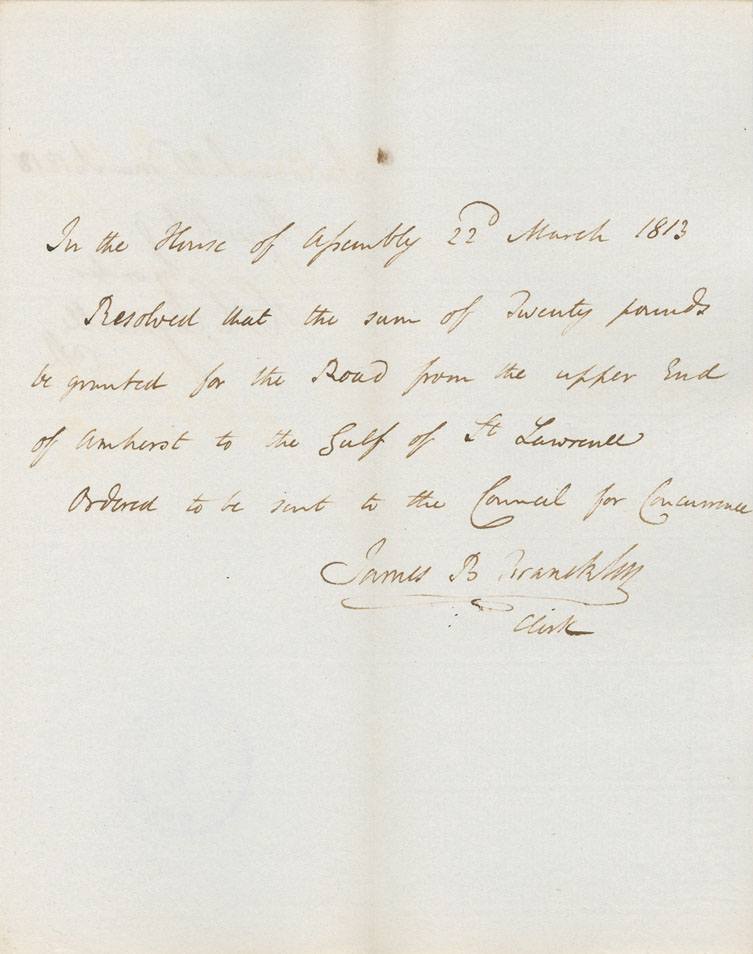 In the House of Assembly 22d March 1813
Resolved that the sum of Twenty pounds
be granted for the Road from the upper End
of Amherst to the Gulf of St Lawrence
Ordered to be sent to the Council for Concurrence
James B Francklin
Clerk